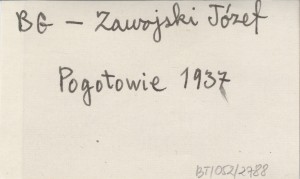 BG - Zawojski Józef
Pogotowie 1937
BT/052/2788